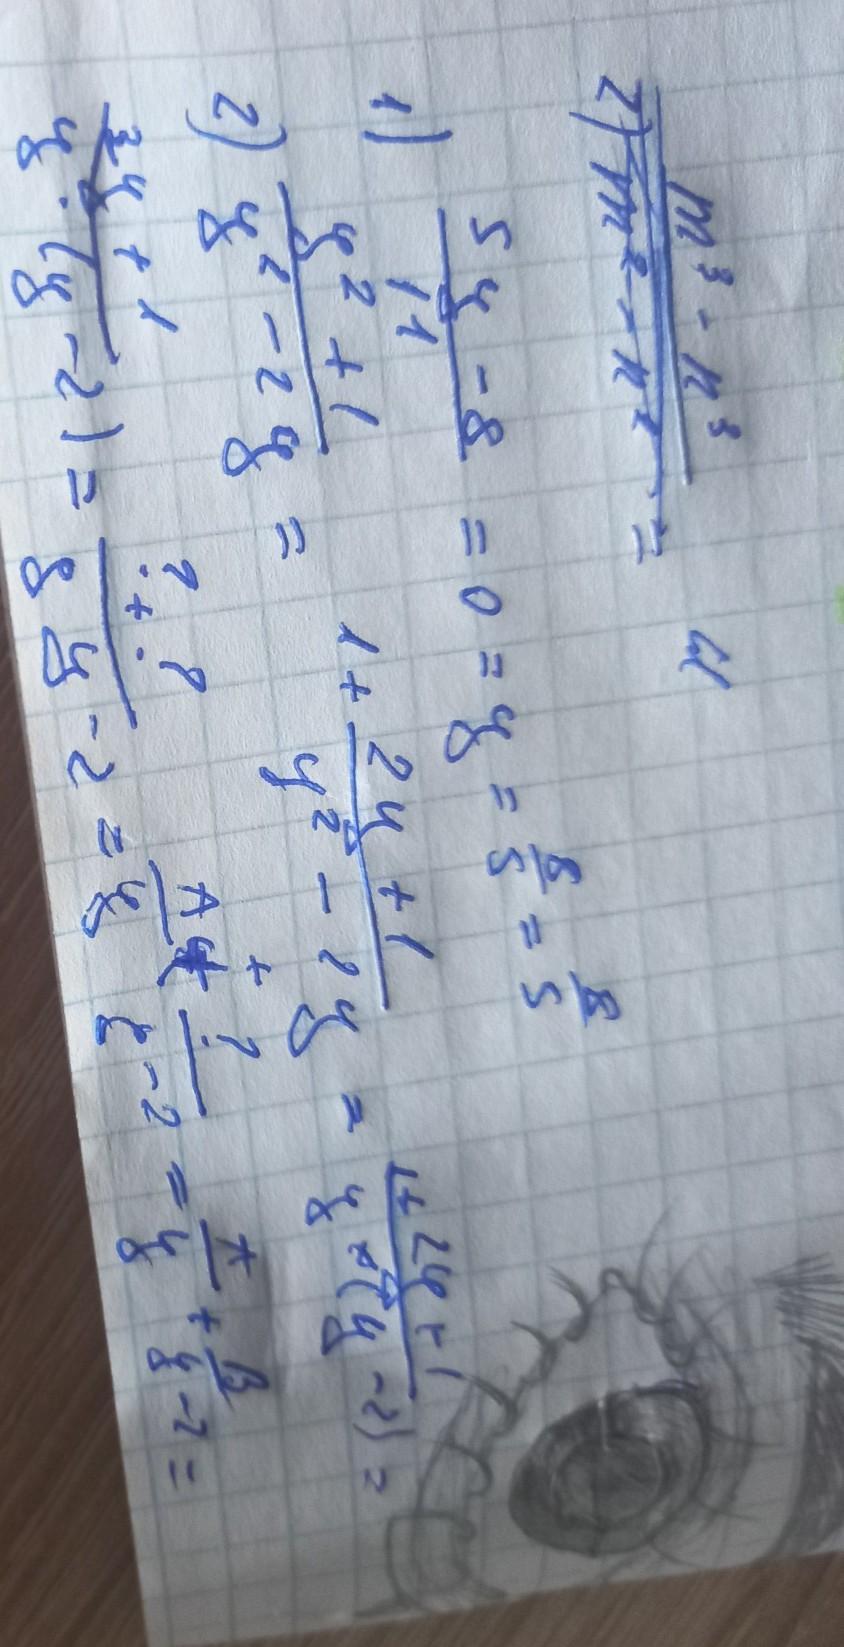 m³ - n³
2) m² - n² =
4
1) (5y - 8)/11 = 0 = y = 8/5 = 8/5
2) (y² + 1)/(y² - 2y) = 1 + (2y + 1)/(y² - 2y) = (1 + 2y + 1)/(y × (y - 2)) =
(2y + 1)/(y · (y - 2)) = (? + ?)/(y y - 2) = A/y + ?/(y - 2) = A/y + B/(y - 2) =